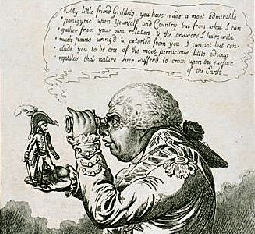 My little friend Grildrig, you have made a most admirable
panegyric upon Yourself and Country, but from what I can
gather from your own relation & the answers I have with
much pains wringed & extorted from you, I cannot but con-
clude you to be one of the most pernicious, little odious
reptiles that nature ever suffer'd to crawl upon the surface
of the Earth